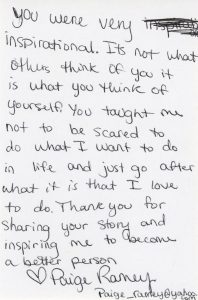 you were very
inspirational. Its not what
others think of you it
is what you think of
yourself. You taught me
not to be scared to
do what I want to do
in life and just go after
what it is that I love
to do. Thank you for
sharing your story and
inspiring me to become
a better person
♡ Paige Ramey
Paige_ramey@yahoo
.com